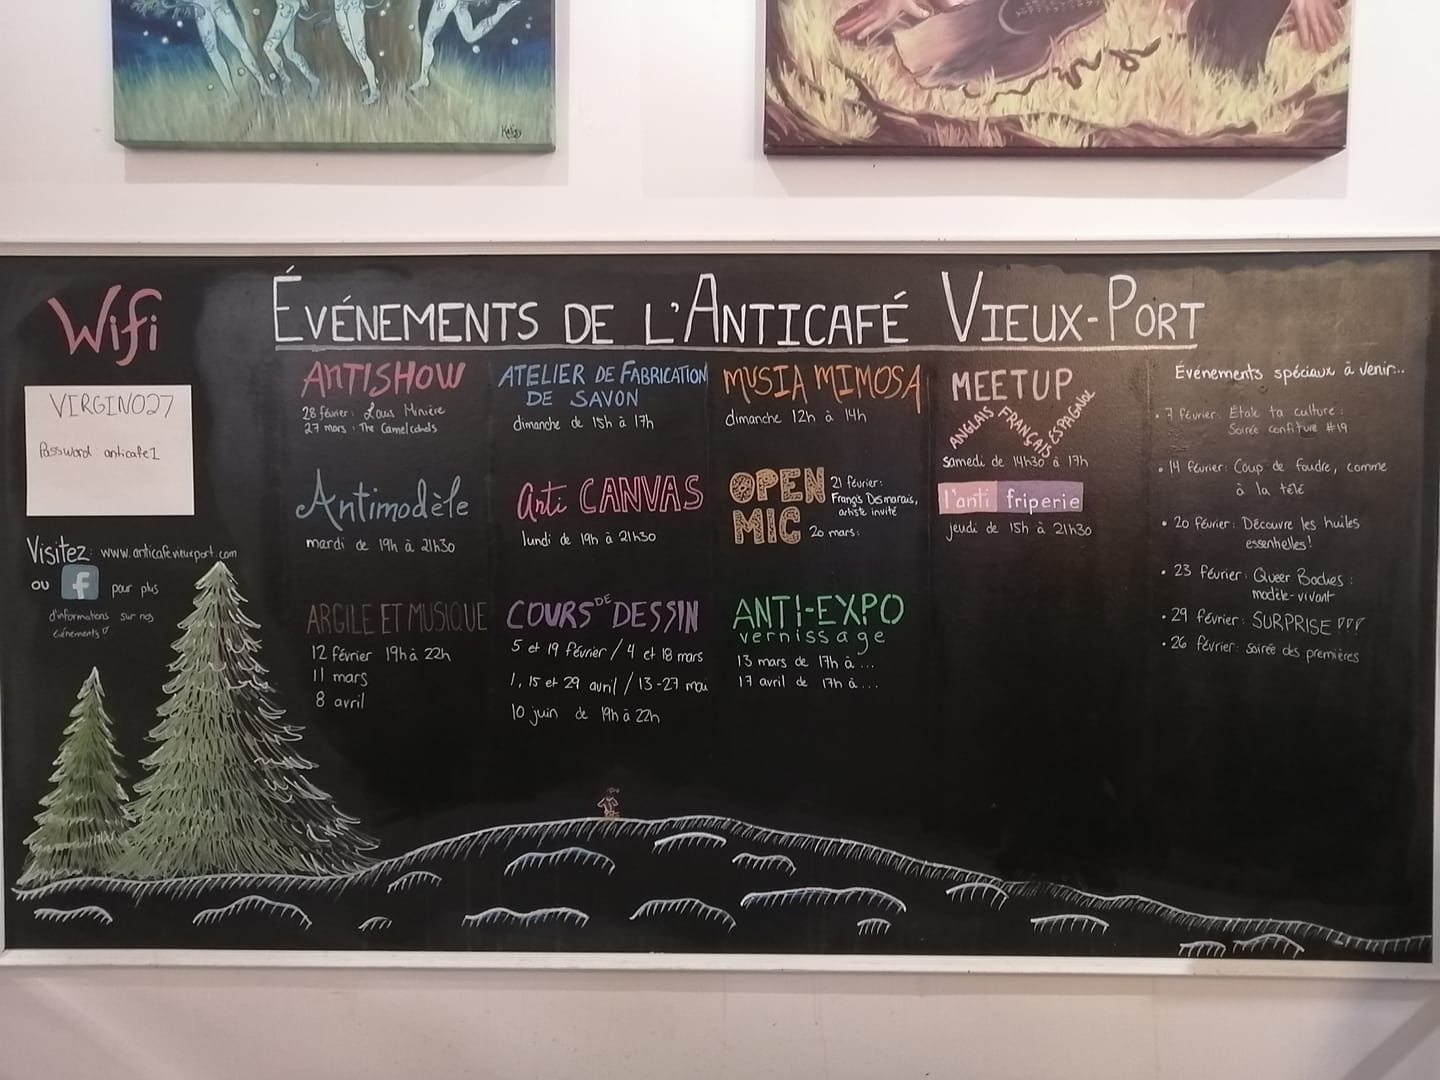 Kalicy
Wifi
VIRGIN027
Password anticafe1
Visitez: www.anticafevieuxport.com
ou f pour plus
d'informations sur nos
événements
ÉVÉNEMENTS DE L'ANTICAFÉ VIEUX-PORT
ANTISHOW
28 février: Louis Minière
27 mars: The Camelcohols
Antimodèle
mardi de 19h à 21h30
ARGILE ET MUSIQUE
12 février 19h à 22h
11 mars
8 avril
ATELIER DE FABRICATION
DE SAVON
dimanche de 15h à 17h
Anti CANVAS
lundi de 19h à 21h30
COURS DE DESSIN
5 et 19 février / 4 et 18 mars
1, 15 et 29 avril / 13-27 mai
10 juin de 19h à 22h
MUSIA MIMOSA
dimanche 12h à 14h
OPEN
MIC
21 février:
François Desmarais,
artiste invité
20 mars:
ANTI-EXPO
vernissage
13 mars de 17h à ...
17 avril de 17h à ...
MEETUP
ANGLAIS FRANÇAIS ESPAGNOL
samedi de 14h30 à 17h
l'anti friperie
jeudi de 15h à 21h30
Événements spéciaux à venir...
• 7 février: Étale ta culture:
Soirée confiture #19
• 14 février: Coup de foudre, comme
à la télé
• 20 février: Découvre les huiles
essentielles!
• 23 février: Queer Bodies:
modèle-vivant
• 29 février: SURPRISE !!!
• 26 février: soirée des premières